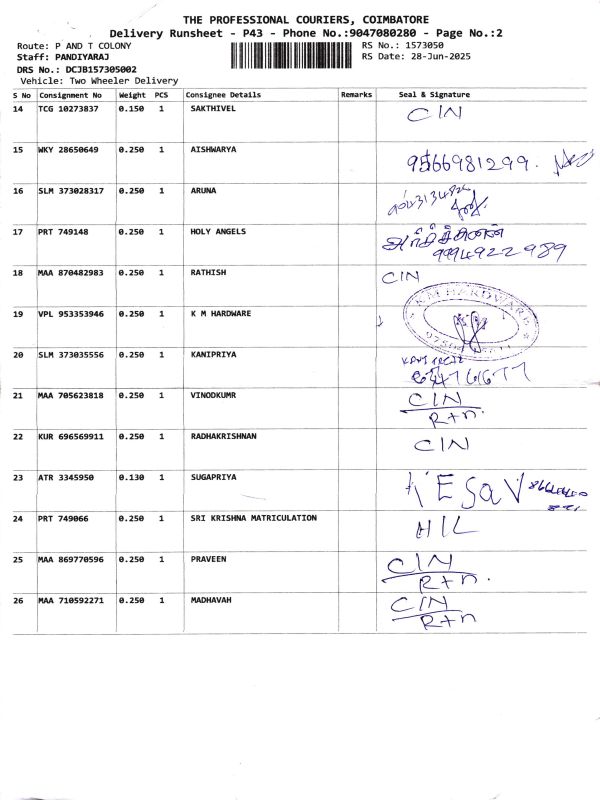 THE PROFESSIONAL COURIERS, COIMBATORE
Delivery Runsheet - P43 - Phone No.:9047080280 - Page No.:2
Route: P AND T COLONY
RS No.: 1573050
Staff: PANDIYARAJ
RS Date: 28-Jun-2025
DRS No.: DCJB157305002
Vehicle: Two Wheeler Delivery
S No Consignment No Weight PCS Consignee Details Remarks Seal & Signature
14 TCG 10273837 0.150 1 SAKTHIVEL CIN
15 WKY 28650649 0.250 1 AISHWARYA 9566981299.
16 SLM 373028317 0.250 1 ARUNA
17 PRT 749148 0.250 1 HOLY ANGELS
9994922989
18 MAA 870482983 0.250 1 RATHISH CIN
19 VPL 953353946 0.250 1 K M HARDWARE KM HARDWARE
20 SLM 373035556 0.250 1 KANIPRIYA
21 MAA 705623818 0.250 1 VINODKUMR CIN
R+n.
22 KUR 696569911 0.250 1 RADHAKRISHNAN CIN
23 ATR 3345950 0.130 1 SUGAPRIYA KESAV
24 PRT 749066 0.250 1 SRI KRISHNA MATRICULATION HIL
25 MAA 869770596 0.250 1 PRAVEEN CIN
R+n.
26 MAA 710592271 0.250 1 MADHAVAH CIN
R+n